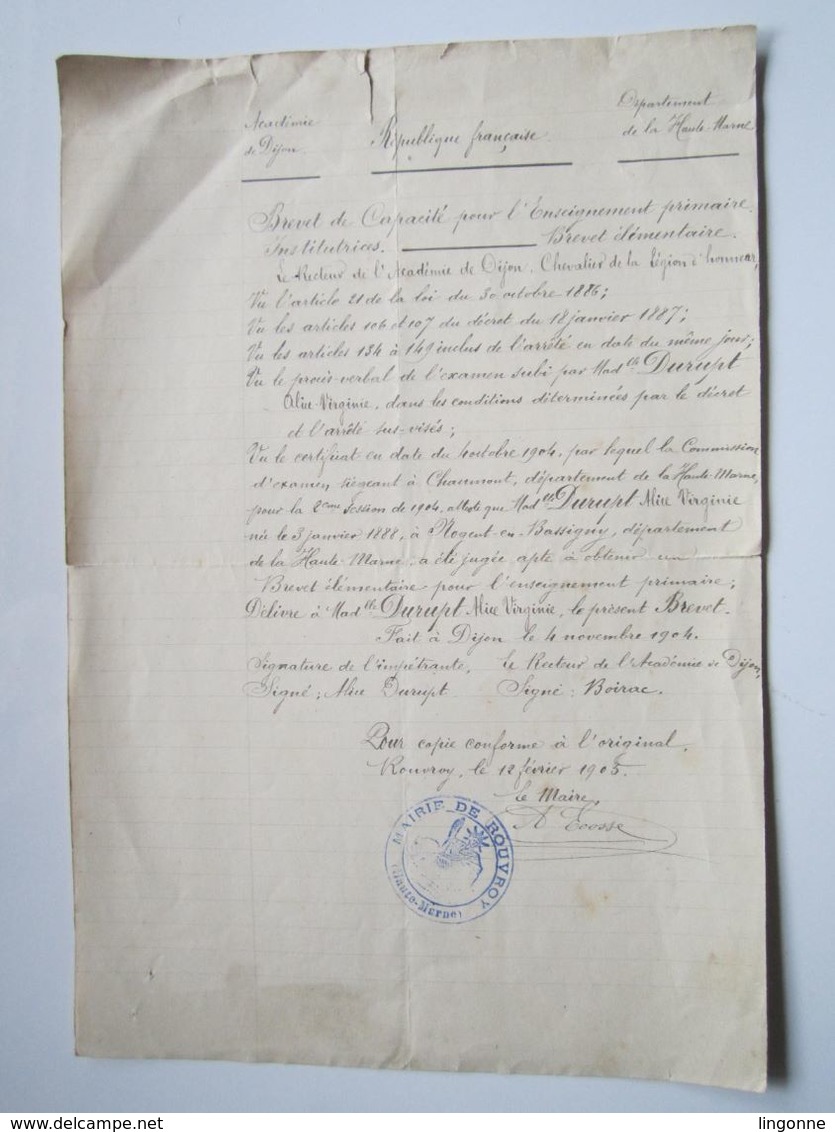 Académie
de Dijon.
République française.
Département
de la Haute-Marne
Brevet de Capacité pour l'Enseignement primaire.
Institutrices. Brevet élémentaire.
Le Recteur de l'Académie de Dijon, Chevalier de la Légion d'honneur,
Vu l'article 21 de la loi du 30 octobre 1886;
Vu les articles 106 et 107 du décret du 18 janvier 1887;
Vu les articles 134 à 149 inclus de l'arrêté en date du même jour;
Vu le procès-verbal de l'examen subi par Mad elle Durupt
Alice-Virginie, dans les conditions déterminées par le décret
et l'arrêté sus-visés;
Vu le certificat en date du 4 octobre 1904, par lequel la Commission
d'examen siégeant à Chaumont, département de la Haute-Marne,
pour la 2eme Session de 1904, atteste que Mad elle Durupt Alice Virginie
née le 3 janvier 1888, à Nogent-en-Bassigny, département
de la Haute-Marne, a été jugée apte à obtenir un
Brevet élémentaire pour l'enseignement primaire;
Délivre à Mad elle Durupt Alice Virginie, le présent Brevet.
Fait à Dijon le 4 novembre 1904.
Signature de l'impétrante, Le Recteur de l'Académie de Dijon,
Signé: Alice Durupt Signé: Boirac.
Pour copie conforme à l'original,
Rouvroy, le 12 février 1905.
Le Maire,
A Ecosse
MAIRIE DE ROUVROY
(Haute-Marne)
delcampe.net
lingonne